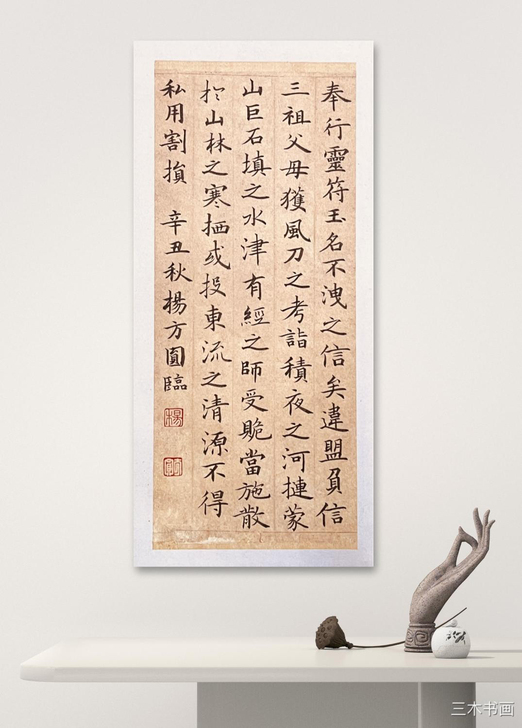 奉行靈符玉名不洩之信矣違盟負信
三祖父母獲風刀之考詣積夜之河摙蒙
山巨石填之水津有經之師受當施散
扵山林之寒栖或投東流之清源不得
私用割損 辛丑秋楊方圓臨
楊
三木书画